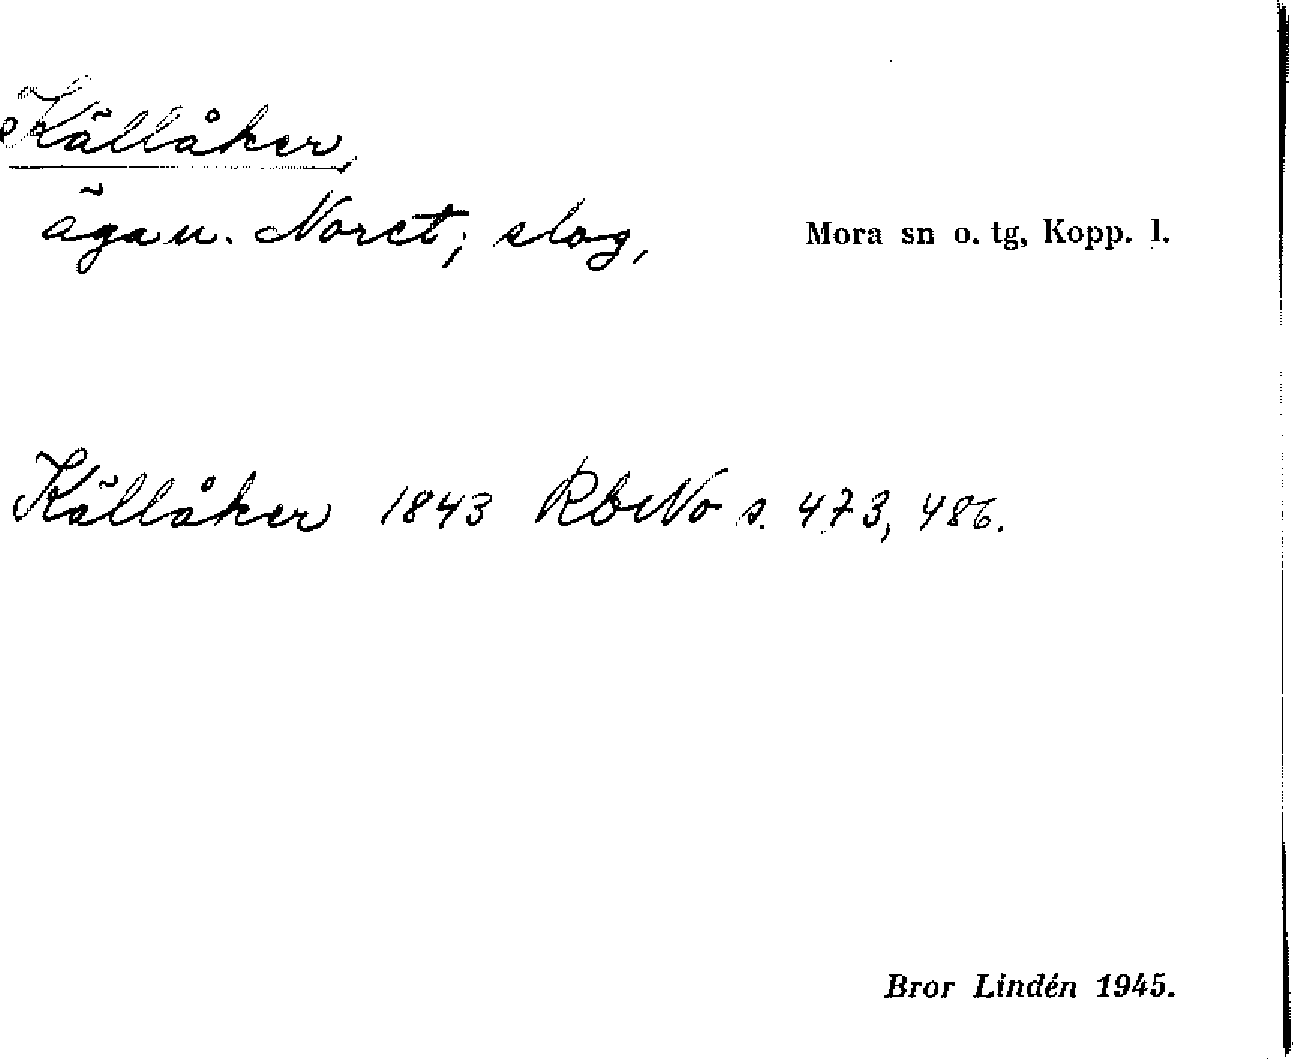 Källåker,
äga u. Noret; slog, Mora sn o. tg, Kopp. l.
Källåker 1843 RbNo s. 473, 486.
Bror Lindén 1945.